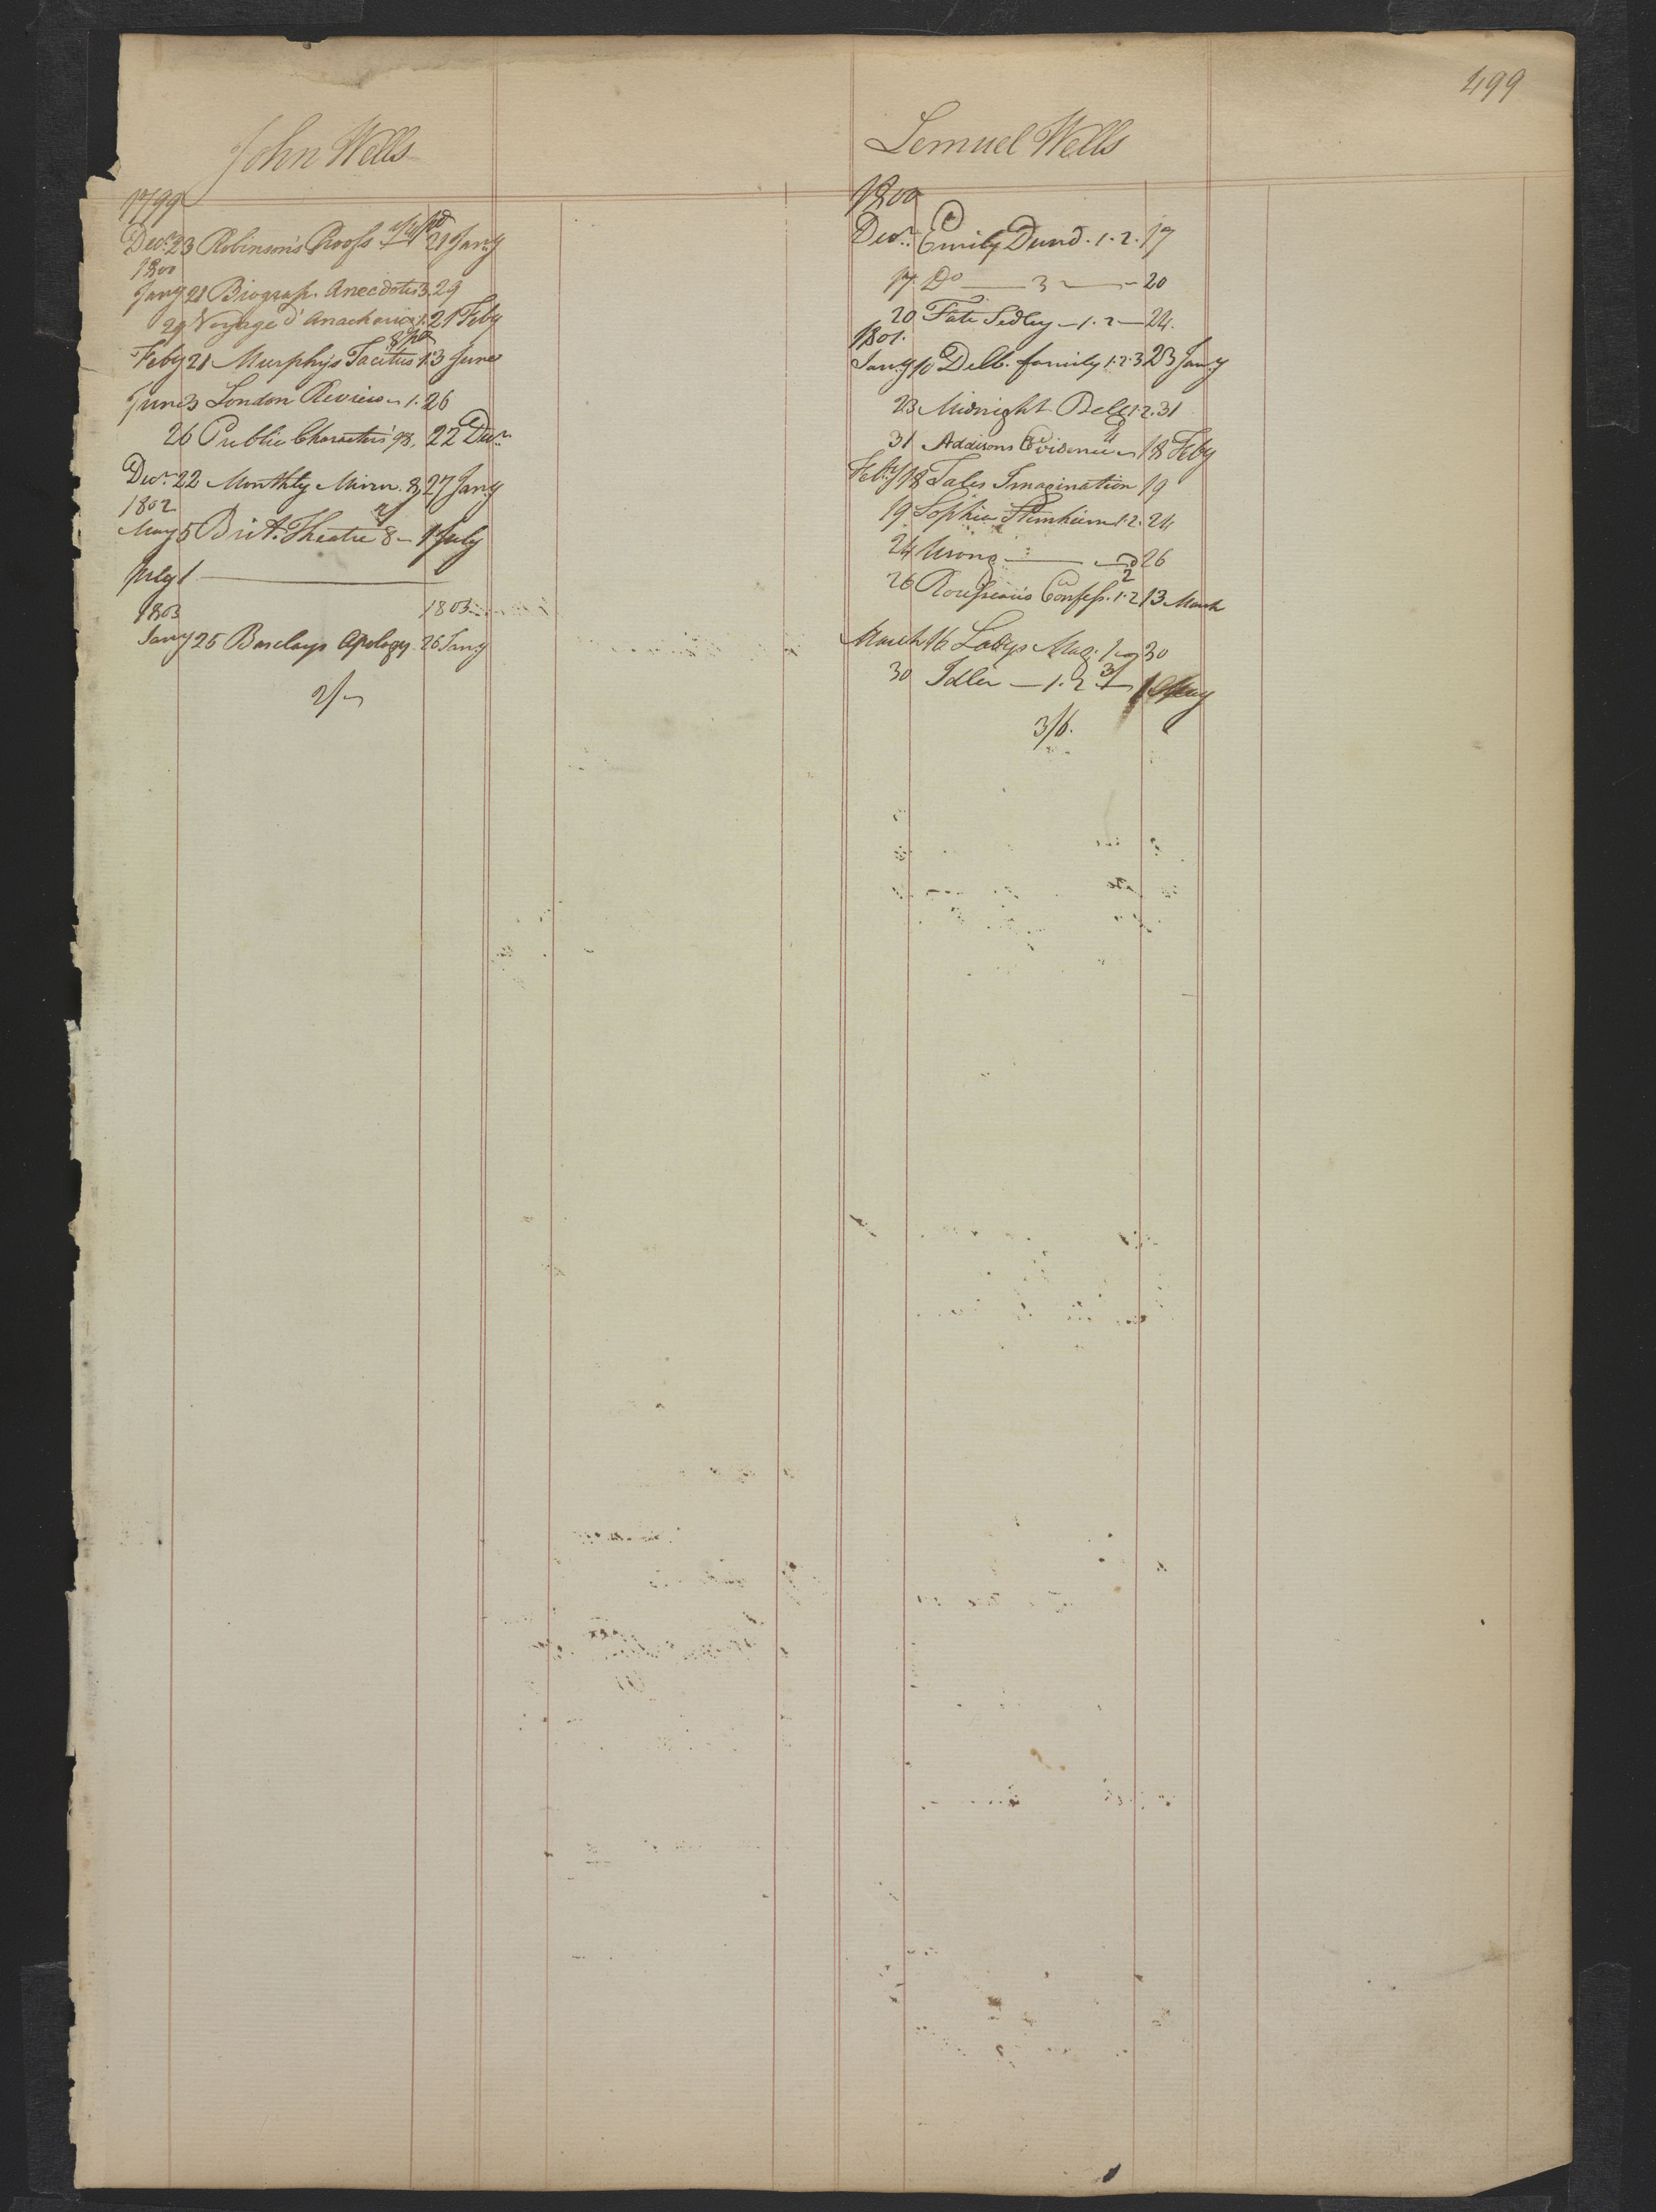 499
John Wells
1799
Decr. 23 Robinson's Proofs 21 Jany
1800
Jany 21 Biograp. Anecdotes 3. 29
29 Voyage d' Anacharsis 1. 21 Feby
8/pd
Feby 21 Murphy's Tacitus 1. 3 June
June 3 London Review 1. 26
26 Public Characters 98. 22 Decr.
Decr. 22 Monthly Mirror. 8 27 Jany
1802
May 5 Brit. Theatre 8 1 July
July 1
1803 1803
Jany 25 Barclays Apology 26 Jany
2/
Lemuel Wells
1800
Decr. Emily Dund. 1. 2. 17
17 Do 3 20
20 Fate Sedley 1. 2 24.
1801.
Jany 10 Delb. family 1. 2. 3 23 Jany
23 Midnight Bell 1. 2. 31
31 Addisons Evidences 18 Feby
Feby 18 Tales Imagination 19
19 Sophia Sternheim 1. 2. 24
24 Wrong 26
2
26 Rousseau's Confess. 1. 2 13 March
March 16 Ladys Mag. 1 30
30 Idler 1. 2 1 May
3/6.